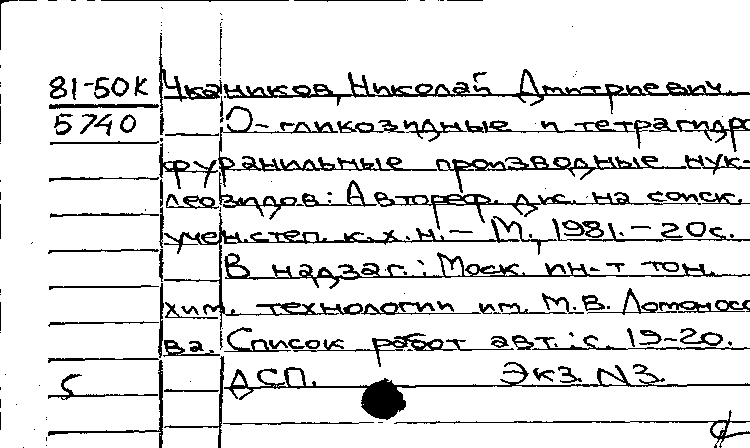 81-50К Чкаников, Николай Дмитриевич.
5740 О-гликозидные и тетрагидро
фуранильные производные нук-
леозидов: Автореф. дис. на соиск.
учен. степ. к. х. н. - М., 1981. - 20с.
В надзаг.: Моск. ин-т тон.
хим. технологии им. М.В. Ломоносо
ва. Список работ авт.: с. 19-20.
5 ДСП. Экз. N3.